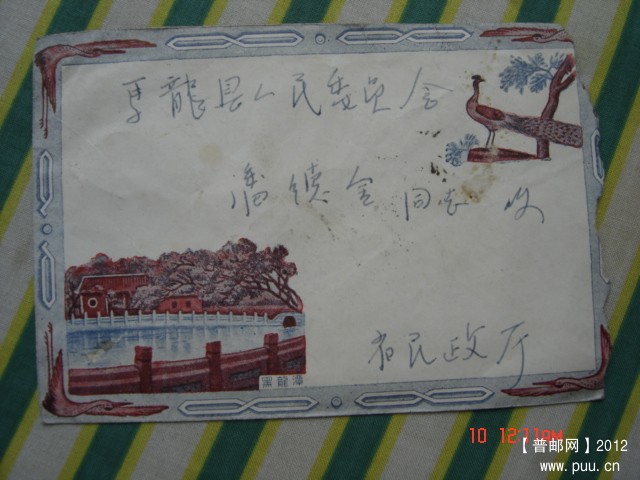 马龍县人民委员会
潘德金同志 收
省民政厅
潭龍黑
10 12:11AM
【普邮网】2012
www.puu.cn